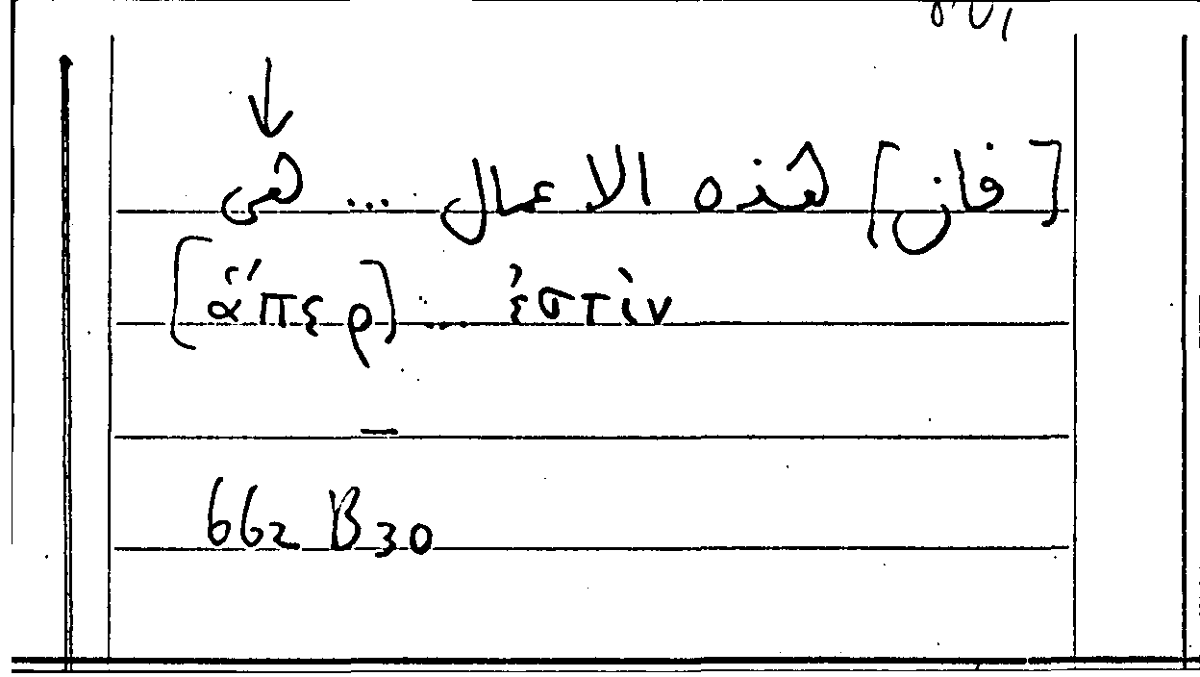 [فان] هذه الاعمال ... هى
[ἅπερ] ... ἐστὶν
662 B30